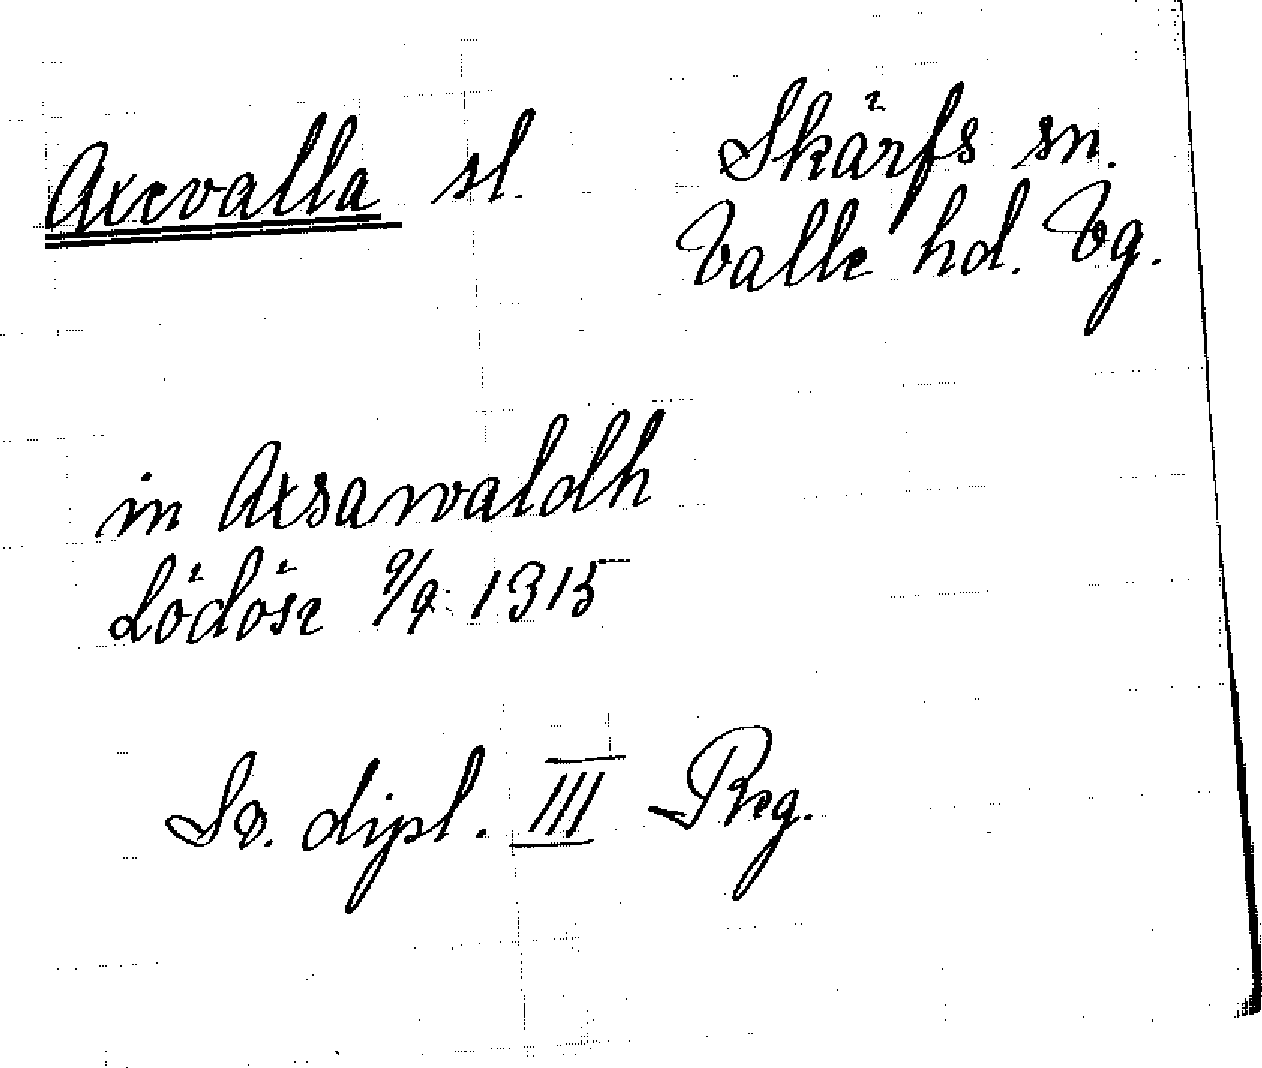 Axevalla sl. Skärfs sn.
Valle hd. Vg.
in Axsawaldh
Lödöse 9/9 1315
Sv. dipl. III Reg.